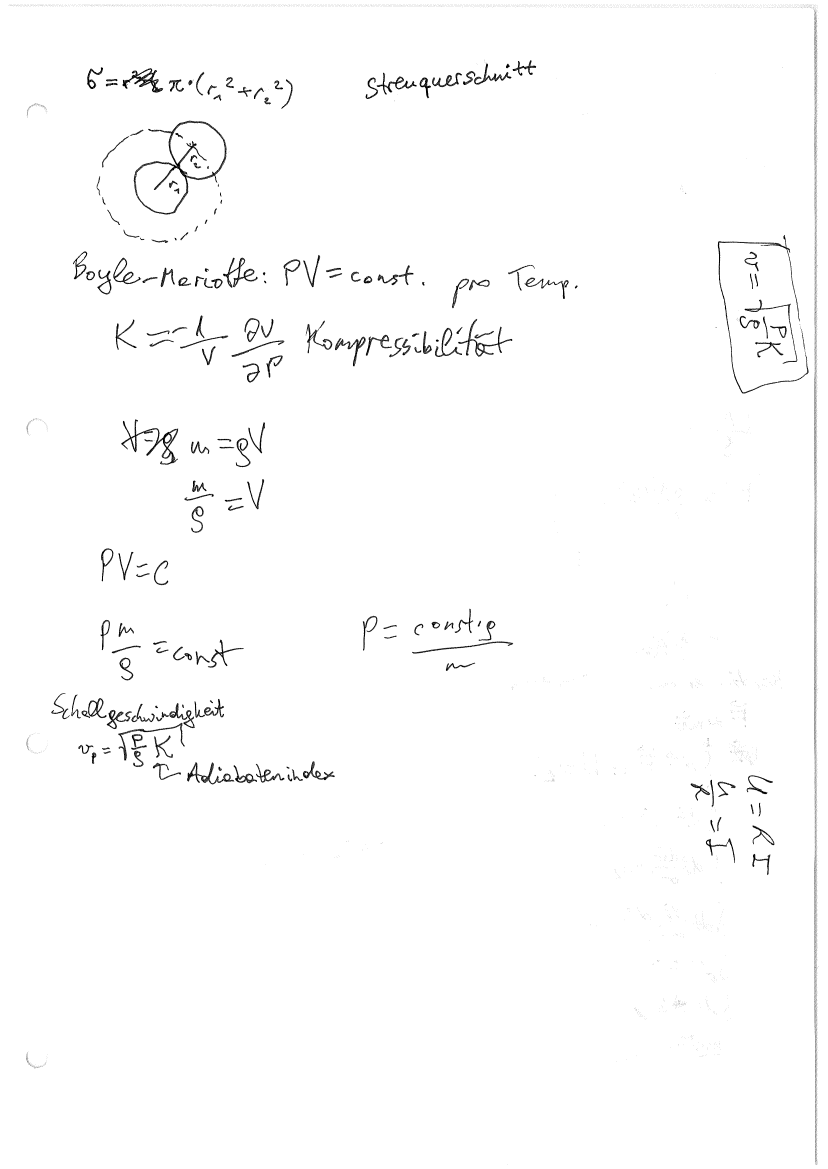 σ = π·(r₁² + r₂²) Streuquerschnitt
r₂
r₁
Boyle-Mariotte: PV = const. pro Temp.
K = -1/V ∂V/∂P Kompressibilität
m = ρV
m/ρ = V
PV = C
P m/ρ = const P = const·ρ/m
Schallgeschwindigkeit
v_p = √(P/ρ K)
Adiabatenindex
v = √(P/ρ K)
U = R I
U/R = I